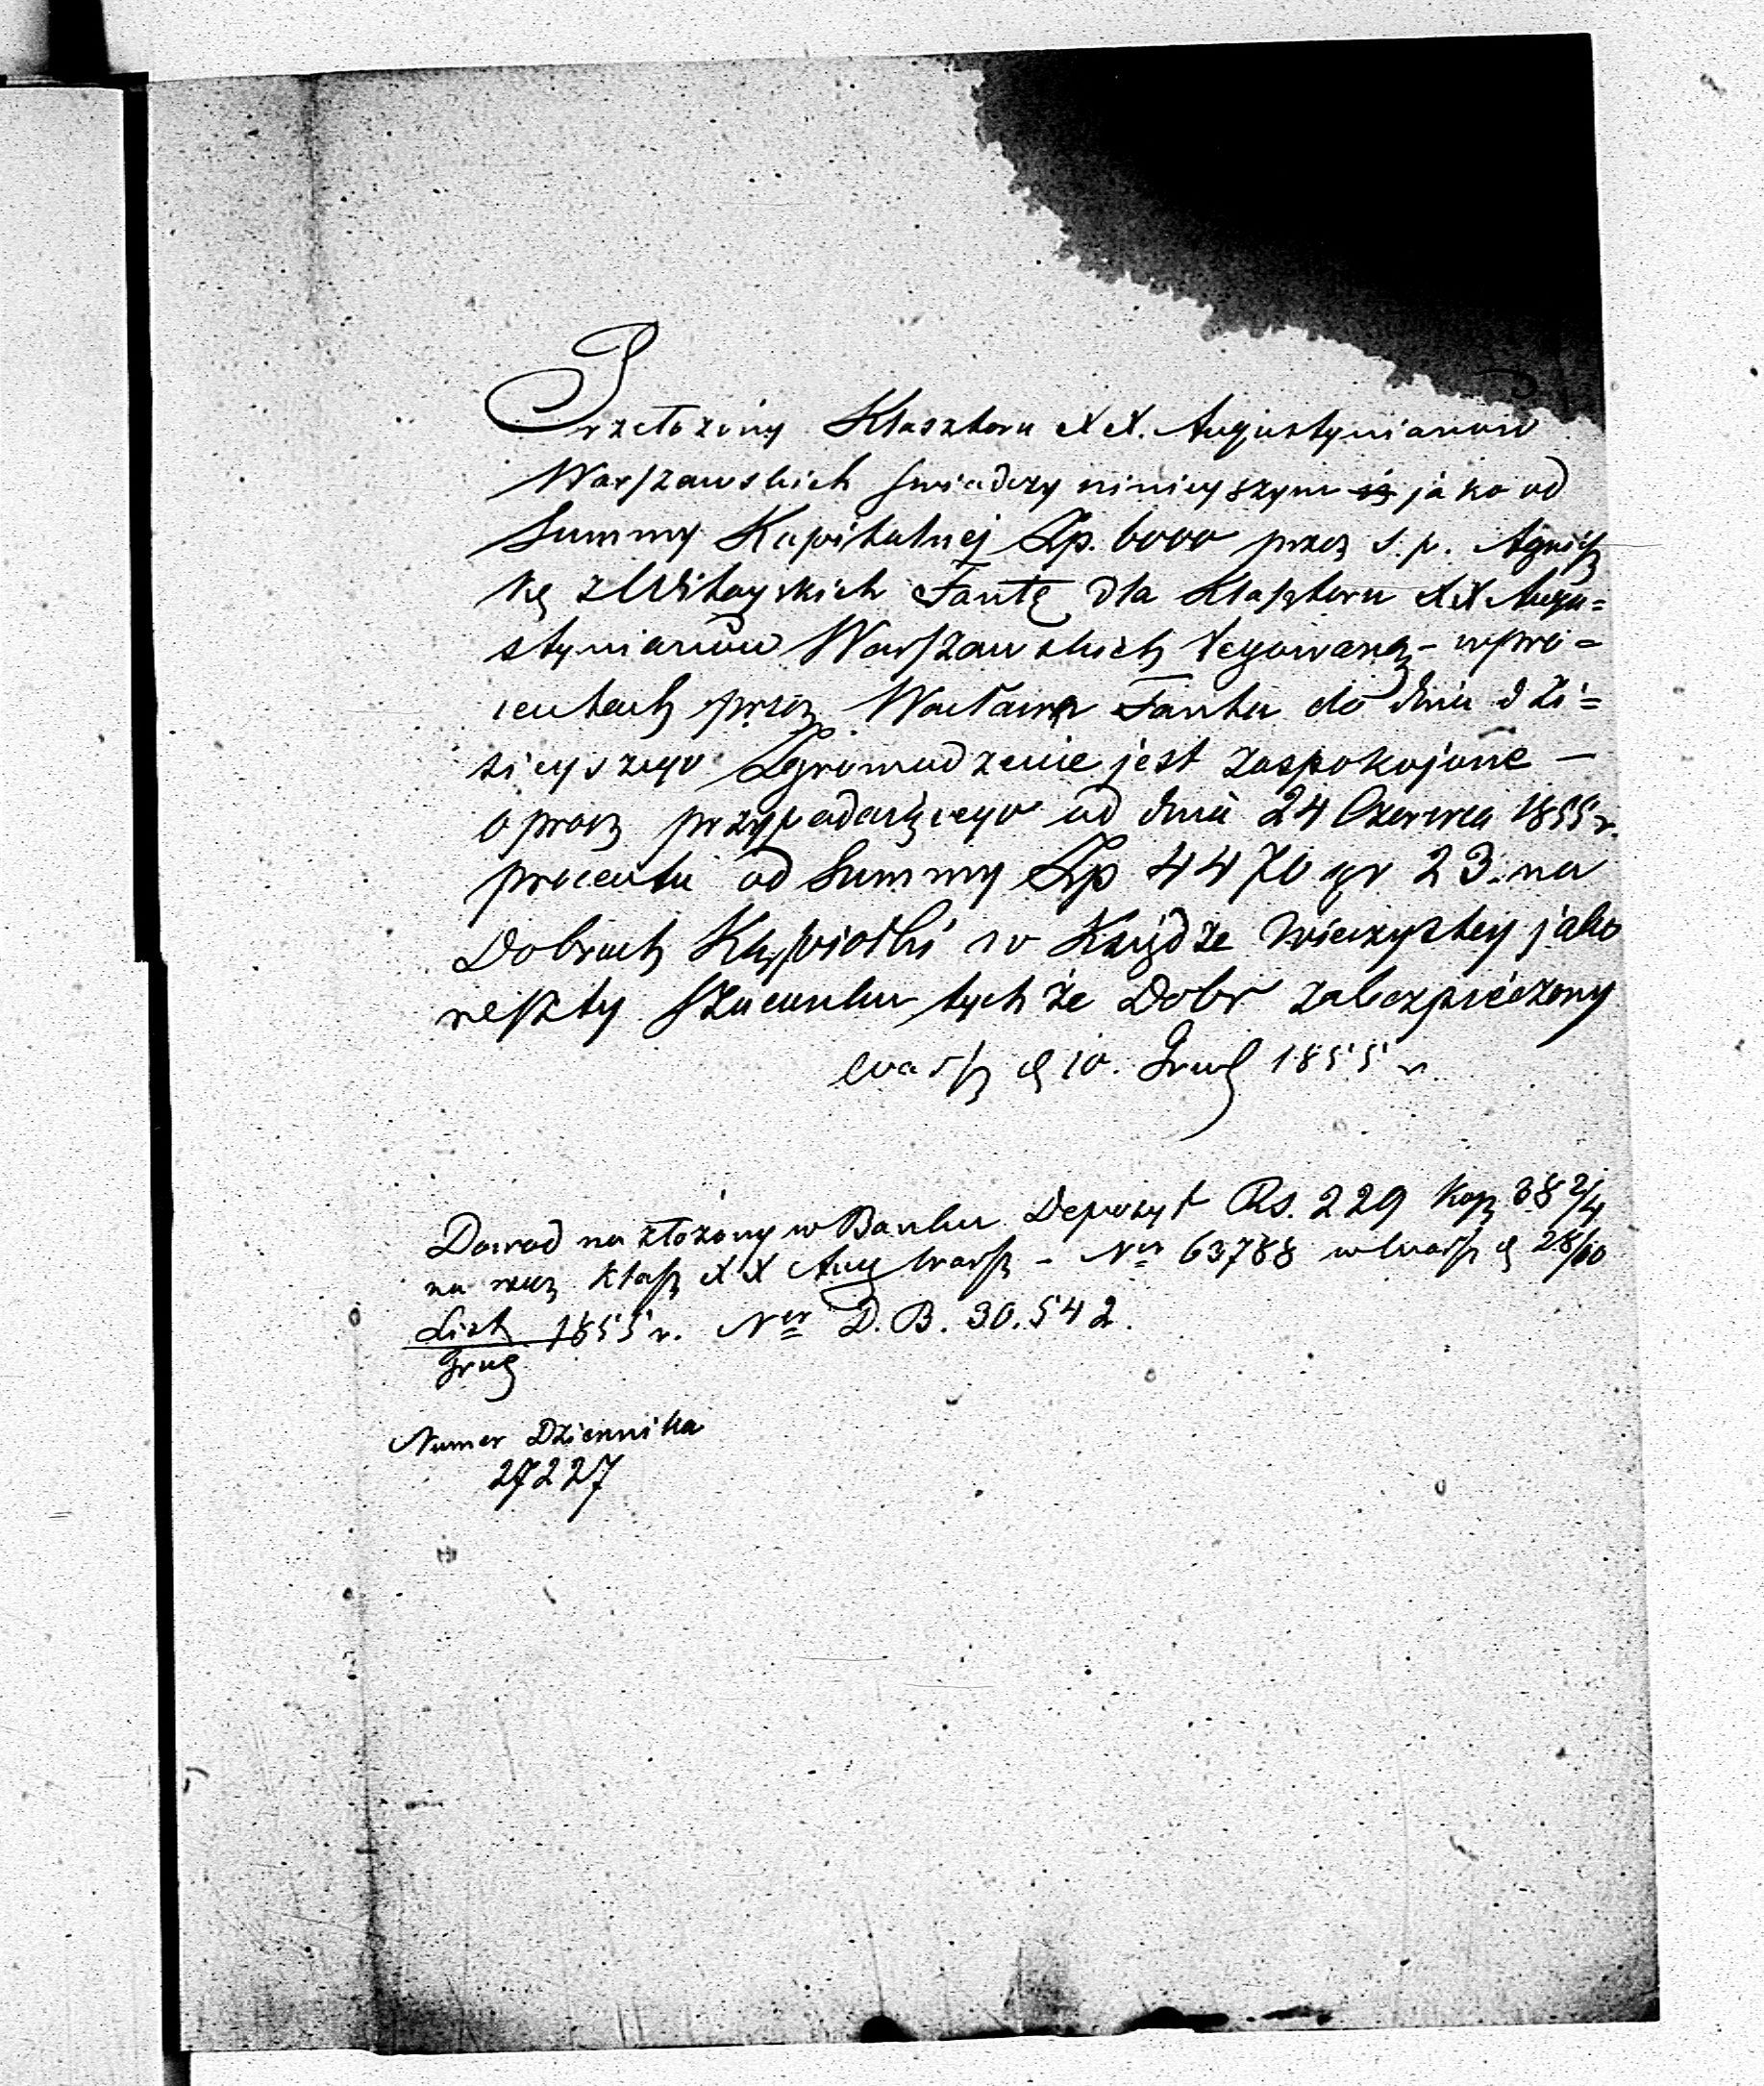 Przełożony Klasztoru XX. Augustynianow
Warszawskich swiadczy ninieyszym jako od
Summy Kapitalnej Złp. 6000 przez s. p. Agnisz
kę z Fantę dla Klasztoru XX Augu=
stynianów Warszawskich legowaną - w pro=
centach przez Wacława Fantu do dnia dzi=
sieyszego Zgromadzenie jest zaspokojone —
oprocz przypadaiącego od dnia 24 Czerwca 1855 r.
procentu od Summy Złp 4470 gr 23. na
Dobrach w Księdze wieczystey jako
reszty szacunku tychże Dobr zabezpieczony
Warsz d 10. Grud 1855 r.
Dowod na złożony w Banku Depozyt Rs. 229 Kop 38 2/4
na rzecz Klasz XX Aug Warsz - Nr 63788 w Warsz d 28/10
List/Grud 1855 r. Nr D. B. 30.542.
Numer Dziennika
27227